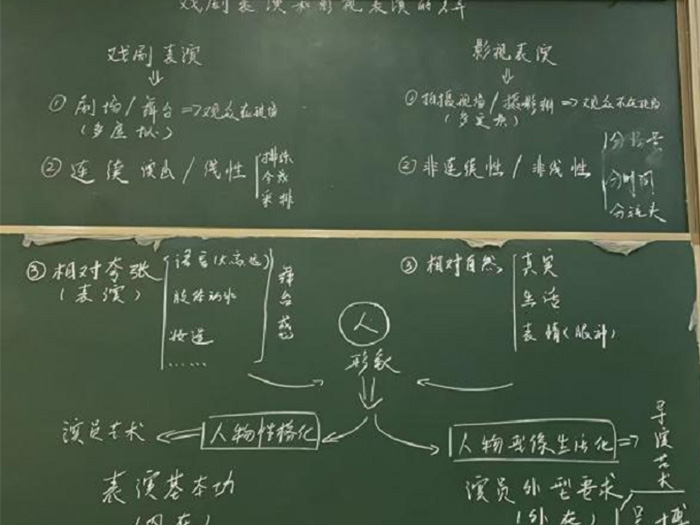 戏剧表演和影视表演的名单
戏剧表演
⇓
① 剧场/舞台⇒观众在现场
(多虚拟)
② 连续演出/线性
排练
合成
采排
影视表演
⇓
① 拍摄现场/摄影棚⇒观众不在现场
(多实景)
② 非连续性/非线性
分场景
分时间
分镜头
③ 相对夸张
(表演)
语言
肢体动作
妆造
……
舞台感
③ 相对自然
真实
生活
表情(眼神)
人
形象
人物性格化
演员艺术
表演基本功
(内在)
人物形像生活化
导演艺术
演员外型要求
(外在)